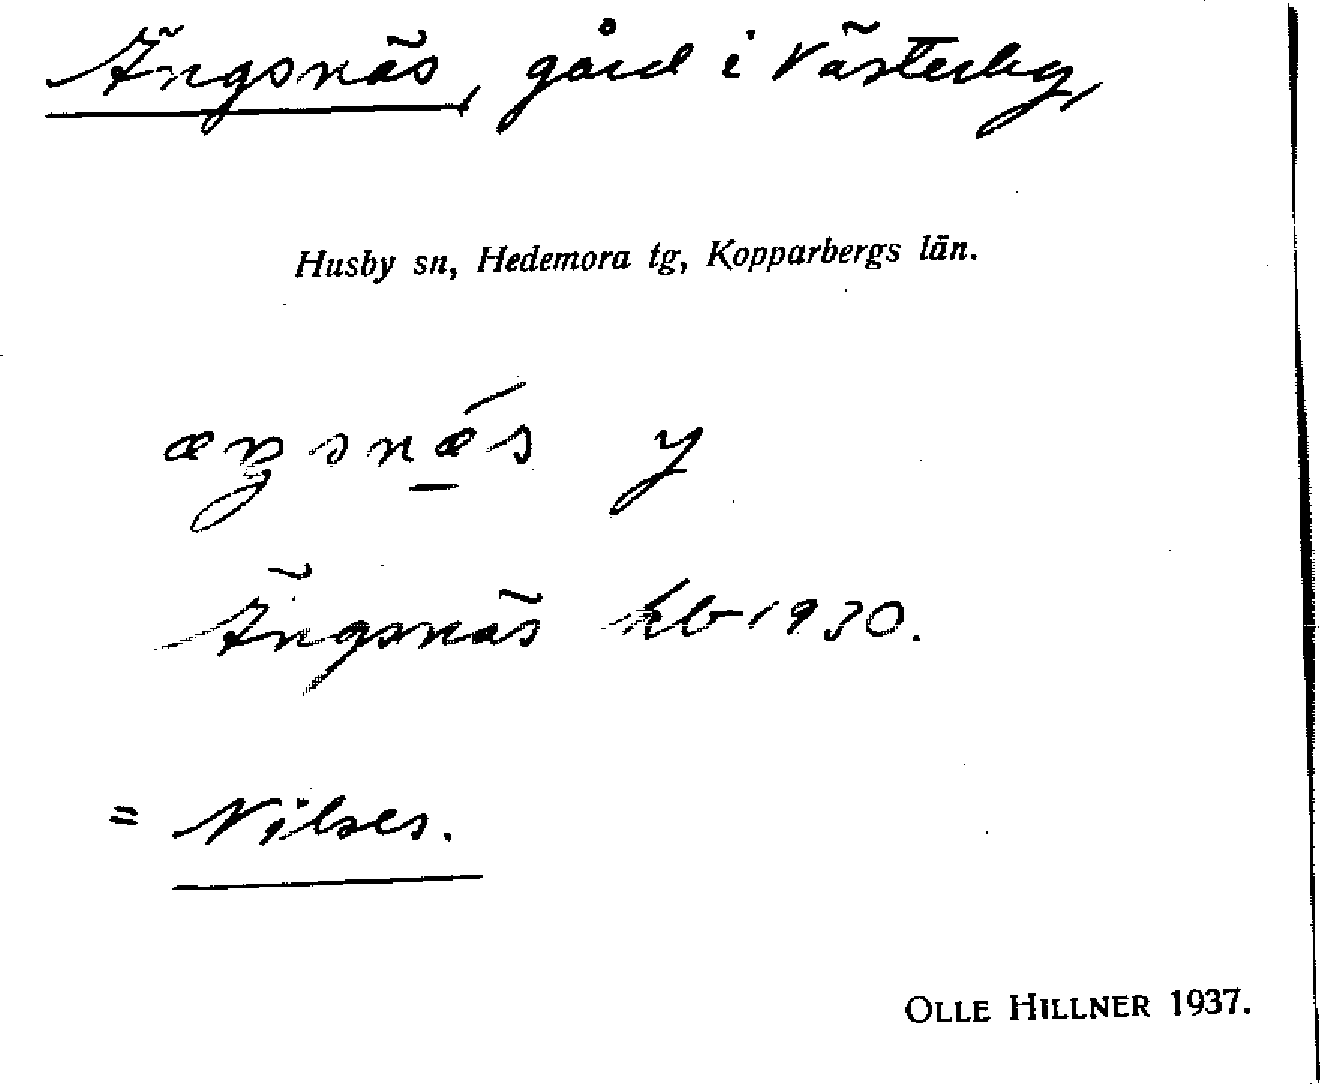 Ängsnäs, gård i Västerby,
Husby sn, Hedemora tg, Kopparbergs län.
æŋsnǽ̠s y
Ängsnäs kb 1930.
= Nilses.
OLLE HILLNER 1937.